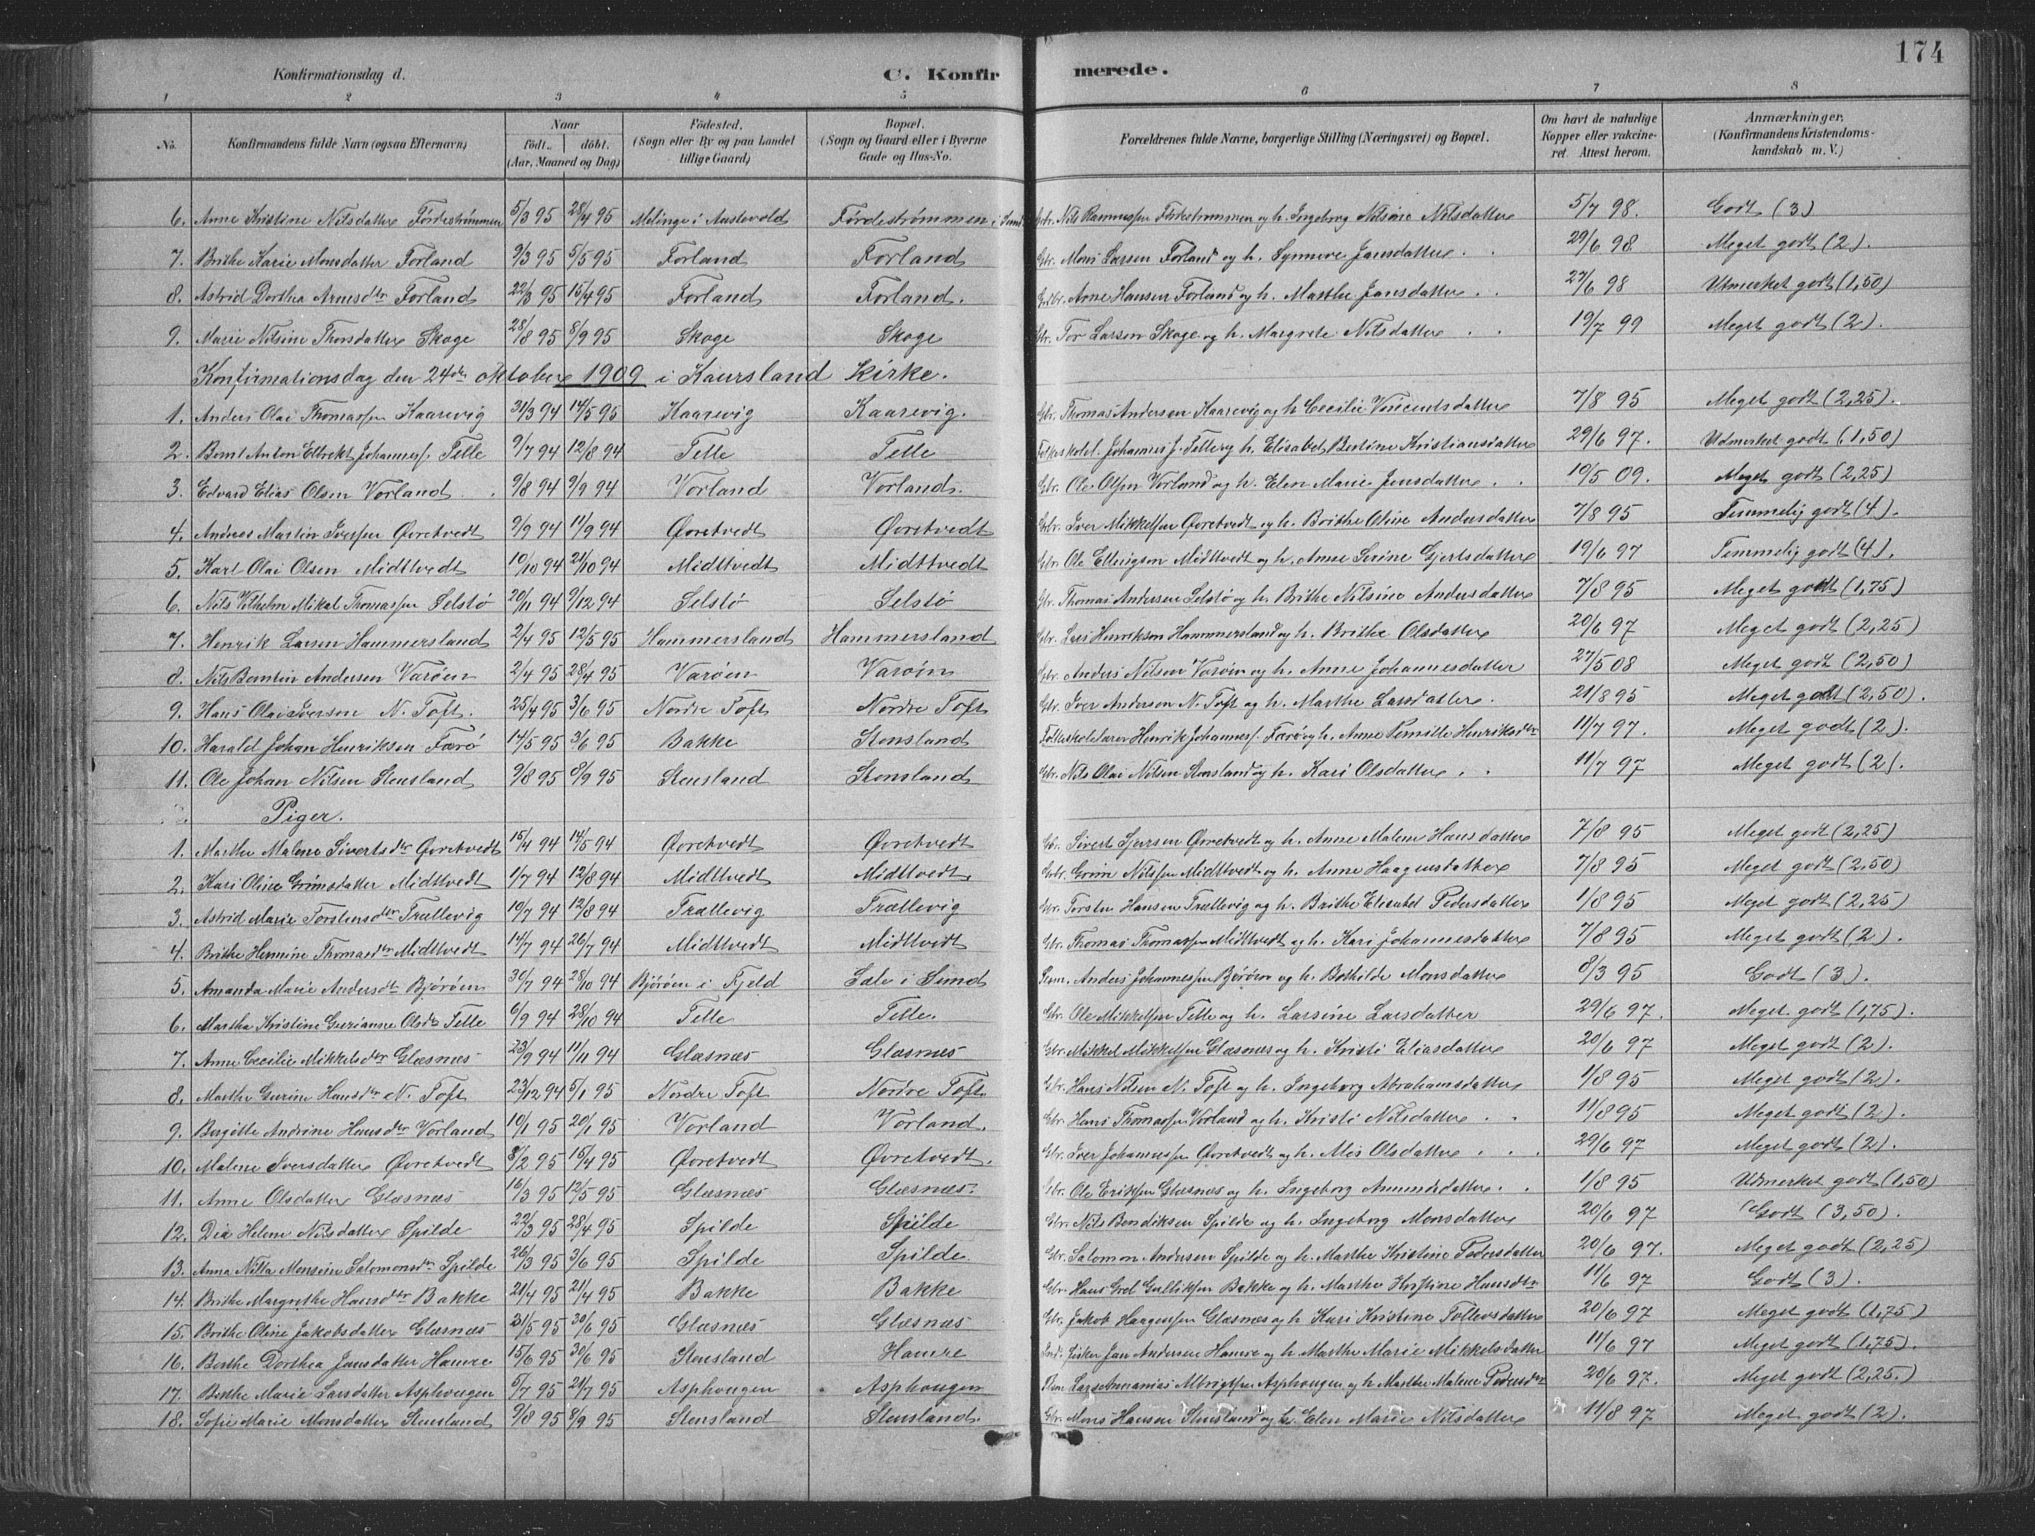 174
Konfirmationsdag d. C. Konfirmerede.
1 2 3 4 5 6 7 8
No. Konfirmandens fulde Navn (ogsaa Efternavn) Naar født. døbt. (Aar, Maaned og Dag) Fødested. (Sogn eller By og paa Landet tillige Gaard) Bopæl. (Sogn og Gaard eller i Byerne Gade og Hus-No. Forældrenes fulde Navne, borgerlige Stilling (Næringsvei) og Bopæl. Om havt de naturlige Kopper eller vakcineret. Attest herom. Anmærkninger. (Konfirmandens Kristendomskundskab m. V.)
6. Anne Kristine Nilsdatter Førdestrømmen 5/3 95 28/4 95 Melinge i Austevold Førdestrømmen i Sund Gbr. Nils Rasmussen Førdestrømmen og h. Ingeborg Nilsine Nilsdatter 5/7 98. Godt (3)
7. Brithe Karie Monsdatter Forland 9/3 95 5/5 95 Forland Forland Gbr. Mons Larsen Forland og h. Synneve Jansdatter 29/6 98 Meget godt (2).
8. Astrid Dorthea Arnesdtr Forland 22/3 95 15/4 95 Forland Forland. Gbr. Arne Hansen Forland og h. Marthe Jansdatter 27/6 98 Udmerket godt (1,50)
9. Marie Nilsine Thorsdatter Skoge 28/8 95 8/9 95 Skoge Skoge Gbr. Tor Larsen Skoge og h. Margrete Nilsdatter 19/7 99 Meget godt (2).
Konfirmationsdag den 24de oktober 1909 i Kausland Kirke.
1. Anders Olai Thomassen Kaarevig 31/3 94 14/5 95 Kaarevig Kaarevig. Gbr. Thomas Andersen Kaarevig og h Cecilie Vincentsdatter 7/8 95 Meget godt (2,25).
2. Bernt Anton Elbrekt Johanness. Telle 9/7 94 12/8 94 Telle Telle Folkeskolel. Johannes J. Telle og h. Elisabet Bertine Kristiansdatter 29/6 97. Udmerket godt (1,50)
3. Edvard Elias Olsen Vorland 9/8 94 9/9 94 Vorland Vorland. Gbr. Ole Olsen Vorland og h. Elen Marie Jensdatter 19/5 09. Meget godt (2,25)
4. Andreas Martin Iversen Øvretvedt 9/9 94 11/9 94 Øvretvedt Øvretvedt Gbr. Iver Mikkelsen Øvretvedt og h. Brithe Oline Andersdatter 7/8 95 Temmelig godt (4).
5. Karl Olai Olsen Midttvedt 10/10 94 21/10 94 Midttvedt Midttvedt Gbr. Ole Ellingsen Midttvedt og h. Anne Serine Gjertsdatter 19/6 97 Temmelig godt (4).
6. Nils Vilhelm Mikal Thomassen Selstø 20/11 94 9/12 94 Selstø Selstø Gbr. Thomas Andersen Selstø og h. Brithe Nilsine Andersdatter 7/8 95 Meget godt (1,75)
7. Henrik Larsen Hammersland 2/4 95 12/5 95 Hammersland Hammersland Gbr. Lars Henriksen Hammersland og h. Brithe Olsdatter 20/6 97 Meget godt (2,25)
8. Nils Berntin Andersen Varøen 2/4 95 28/4 95 Varøen Varøen Gbr. Anders Nilsen Varøen og h. Anne Johannesdatter 27/5 08 Meget godt (2,50)
9. Hans Olai Iversen N. Toft. 25/4 95 3/6 95 Nordre Toft Nordre Toft Gbr. Iver Andersen N. Toft og h. Marthe Larsdatter. 21/8 95 Meget godt (2,50).
10. Harald Johan Henriksen Færø 14/5 95 3/6 95 Bakke Stensland Folkeskolelærer Henrik Johanness. Færø og h. Anne Pernille Henriksdtr 11/7 97. Meget godt (2).
11. Ole Johan Nilsen Stensland 9/8 95 8/9 95 Stensland Stensland Gbr. Nils Olai Nilsen Stensland og h. Kari Olsdatter 11/7 97 Meget godt (2).
Piger.
1. Marthe Malene Sivertsdtr Øvretvedt 15/4 94 14/5 94 Øvretvedt Øvretvedt Gbr. Sivert Øvretvedt og h. Anne Malene Hansdatter 7/8 95 Meget godt (2,25)
2. Kari Oline Grimsdatter Midttvedt 1/7 94 12/8 94 Midttvedt Midttvedt. Gbr. Grim Nilssen Midttvedt og h. Anne Haagensdatter 7/8 95 Meget godt (2,50)
3. Astrid Marie Torstensdtr Trællevig 10/7 94 12/8 94 Trællevig Trællevig Gbr. Torsten Hansen Trællevig og h. Brithe Elisabet Pedersdatter 1/8 95 Meget godt (2,25)
4. Brithe Hermine Thomasdtr Midttvedt 14/7 94 26/7 94 Midttvedt Midttvedt Gbr. Thomas Thomassen Midttvedt og h. Kari Johannesdatter 7/8 95 Meget godt (2).
5. Amanda Marie Andersdtr Bjørøen 30/7 94 28/10 94 Bjørøen i Fjeld Sale i Sund Anders Johannessen Bjørøen og h. Bothilde Monsdatter 8/3 95 Godt (3).
6. Martha Kristine Guriane Olsdtr Telle 6/9 94 28/10 94 Telle Telle. Gbr. Ole Mikkelsen Telle og h. Larsine Larsdatter 29/6 97. Meget godt (1,75).
7. Anne Cecilie Mikkelsdtr Glæsnæs 23/9 94 11/11 94 Glæsnæs Glæsnæs Gbr. Mikkel Mikkelsen Glæsnæs og h. Kristi Eliasdatter 20/6 97 Meget godt (2).
8. Marthe Gurine Hansdtr N. Toft 23/12 94 5/1 95 Nordre Toft Nordre Toft. Gbr. Hans Nilsen N. Toft og h. Ingeborg Abrahamsdatter 1/8 95 Meget godt (2).
9. Bergitte Andrine Hansdtr Vorland 10/1 95 20/1 95 Vorland Vorland. Gbr. Hans Thomassen Vorland og h. Kristi Nilsdatter 11/8 95 Meget godt (2).
10. Malene Iversdatter Øvretvedt 8/2 95 15/4 95 Øvretvedt Øvretvedt. Gbr. Iver Johannessen Øvretvedt og h. Mis Olsdatter 29/6 97 Meget godt (2).
11. Anne Olsdatter Glæsnæs 16/3 95 12/5 95 Glæsnæs Glæsnæs. Gbr. Ole Eriksen Glæsnæs og h. Ingeborg Amundsdatter 1/8 95 Udmerket godt (1,50)
12. Dia Helene Nilsdatter Spilde 22/3 95 28/4 95 Spilde Spilde Gbr. Nils Bendiksen Spilde og h. Ingeborg Monsdatter 20/6 97 Godt (3,50).
13. Anna Nilla Monsine Salomonsdtr Spilde 26/3 95 3/6 95 Spilde Spilde. Gbr. Salomon Andersen Spilde og h. Marthe Kristine Pedersdatter 20/6 97. Meget godt (2,25)
14. Brithe Margrethe Hansdtr Bakke 21/4 95 21/4 95 Bakke Bakke Gbr. Hans Gulliksen Bakke og h. Marthe Kristine Hansdtr 11/6 97 Godt (3).
15. Brithe Oline Jakobsdatter Glæsnæs 21/5 95 30/6 95 Glæsnæs Glæsnæs Gbr. Jakob Haagensen Glæsnæs og h. Kari Kristine Tollevsdatter 20/6 97 Meget godt (1,75)
16. Berthe Dorthea Jansdatter Hamre 15/6 95 30/6 95 Stensland Hamre Fisker Jan Andersen Hamre og h Marthe Marie Mikkelsdatter 11/6 97 Meget godt (1,75).
17. Berthe Marie Larsdatter Asphougen 5/7 95 21/7 95 Asphougen Asphougen Lars Annanias Asphougen og h Marthe Malene Pedersdtr 20/6 97. Meget godt (2,25.)
18. Sofie Marie Monsdatter Stensland 9/8 95 8/9 95 Stensland Stensland. Gbr. Mons Hansen Stensland og h. Elen Marie Nilsdatter 11/8 97 Meget godt (2).